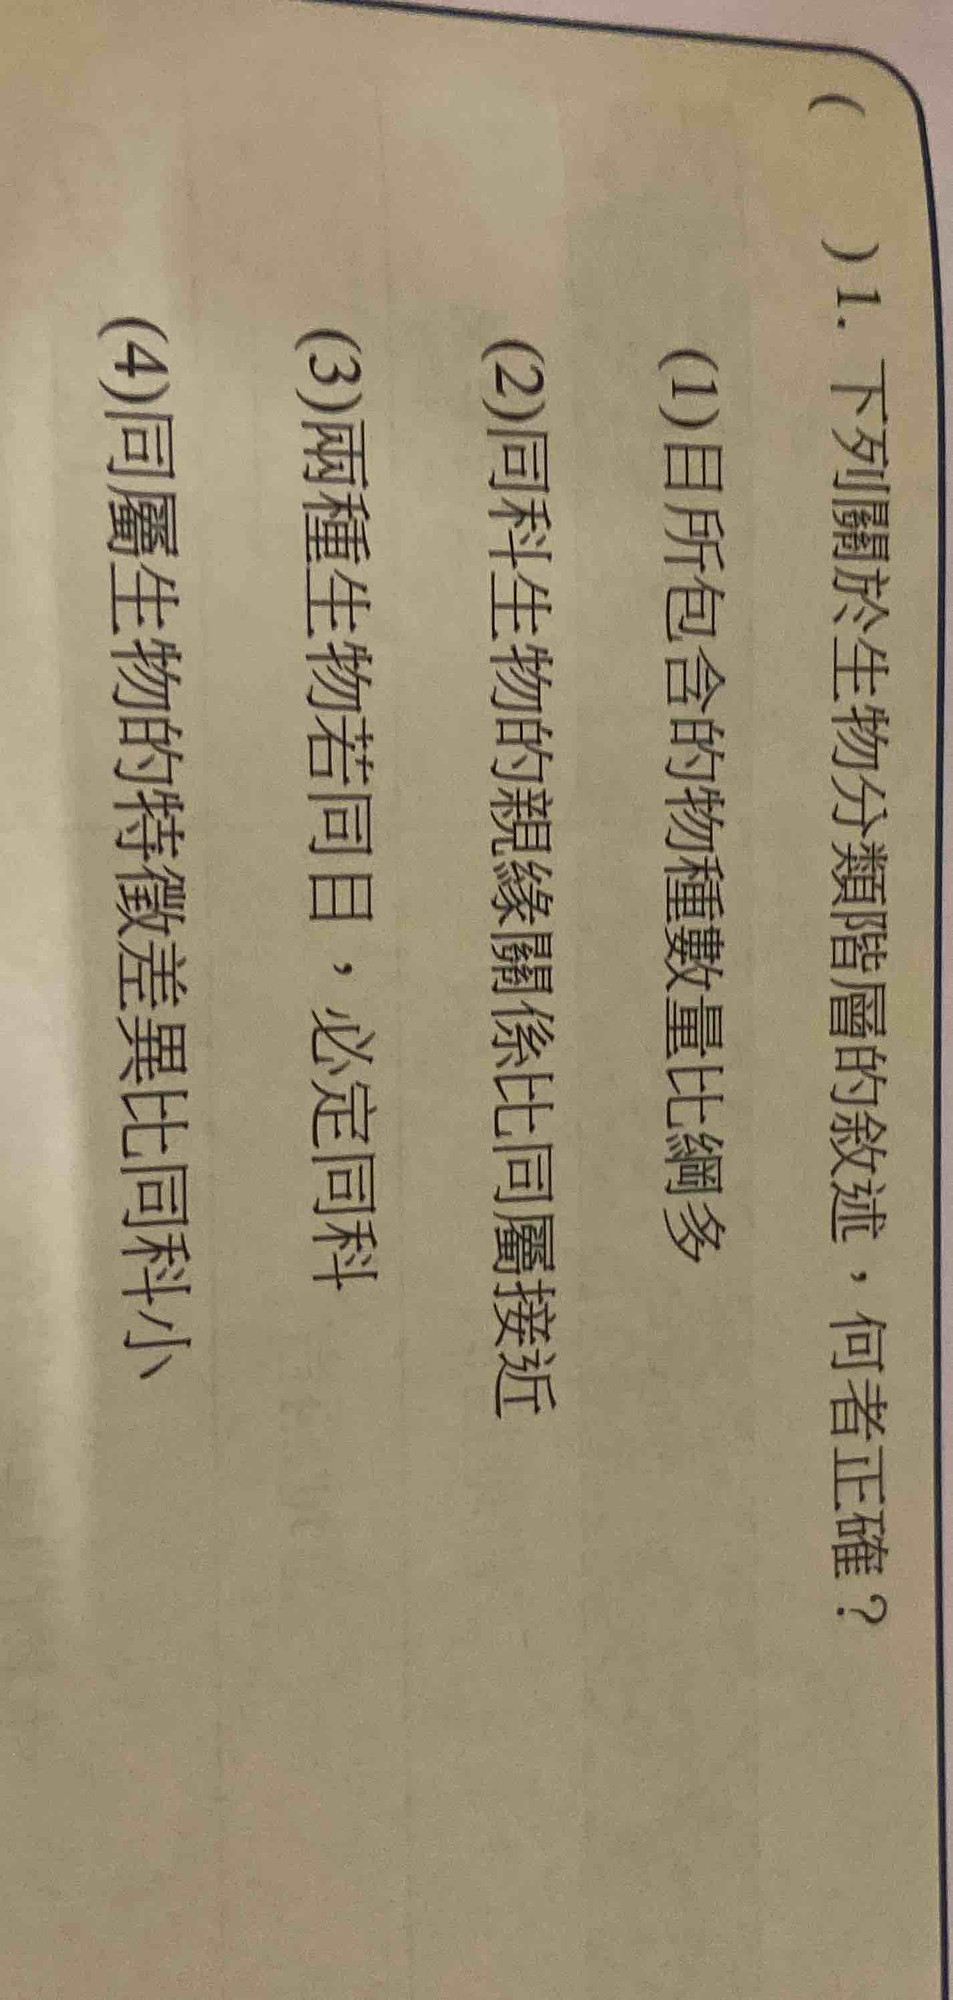 (　　)1. 下列關於生物分類階層的敘述，何者正確？
(1)目所包含的物種數量比綱多
(2)同科生物的親緣關係比同屬接近
(3)兩種生物若同目，必定同科
(4)同屬生物的特徵差異比同科小